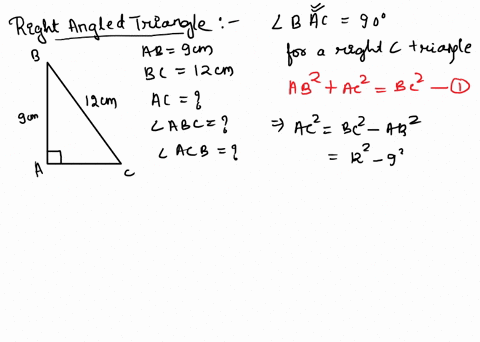 Right Angled Triangle :-
B
9cm
12cm
A
C
AB = 9cm
BC = 12cm
AC = ?
∠ABC = ?
∠ACB = ?
∠BAC = 90°
for a right ∠ triangle
AB² + AC² = BC² — ①
⇒ AC² = BC² - AB²
= 12² - 9²